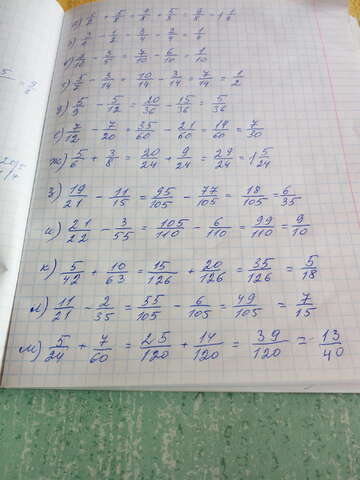 5/ = 9/8
а) 1/2 + 5/8 = 4/8 + 5/8 = 9/8 = 1 1/8
б) 3/4 - 1/2 = 3/4 - 2/4 = 1/4
в) 7/10 - 3/5 = 7/10 - 6/10 = 1/10
г) 5/7 - 3/14 = 10/14 - 3/14 = 7/14 = 1/2
д) 5/9 - 5/12 = 20/36 - 15/36 = 5/36
е) 7/12 - 7/20 = 35/60 - 21/60 = 14/60 = 7/30
ж) 5/6 + 3/8 = 20/24 + 9/24 = 29/24 = 1 5/24
з) 19/21 - 11/15 = 95/105 - 77/105 = 18/105 = 6/35
и) 21/22 - 3/55 = 105/110 - 6/110 = 99/110 = 9/10
к) 5/42 + 10/63 = 15/126 + 20/126 = 35/126 = 5/18
л) 11/21 - 2/35 = 55/105 - 6/105 = 49/105 = 7/15
м) 5/24 + 7/60 = 25/120 + 14/120 = 39/120 = 13/40